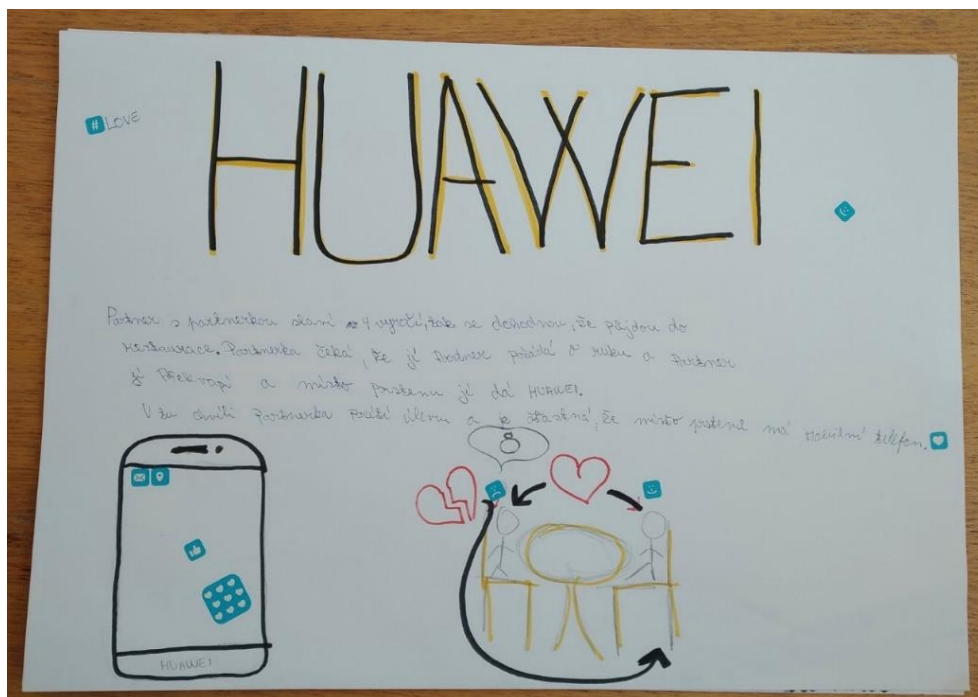 HUAWEI
# LOVE
Partner s partnerkou slaví 4 výročí, tak se dohodnou, že půjdou do
restaurace. Partnerka čeká, že jí Partner požádá o ruku a Partner
jí překvapí a místo prstenu jí dá HUAWEI.
V tu chvíli Partnerka prožije úlevu a je šťastná, že místo prstene má mobilní telefon.
HUAWEI